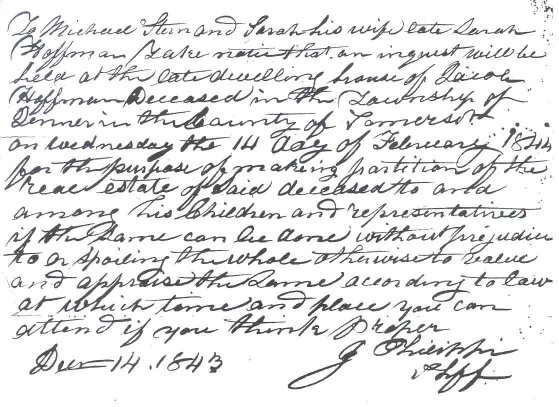 To Michael Stern and Sarah his wife late Sarah
Hoffman Take notice that an inquest will be
held at the late dwelling house of Jacob
Hoffman Deceased in the Township of
Jenner in the County of Somerset
on wednesday the 14 day of February 1844
for the purpose of making partition of the
real estate of said deceased to and
among his Children and representatives
if the same can be done without prejudice
to or spoiling the whole otherwise to value
and appraise the same according to law
at which time and place you can
attend if you think Proper
Decr 14. 1843 J Philippi
Shff.